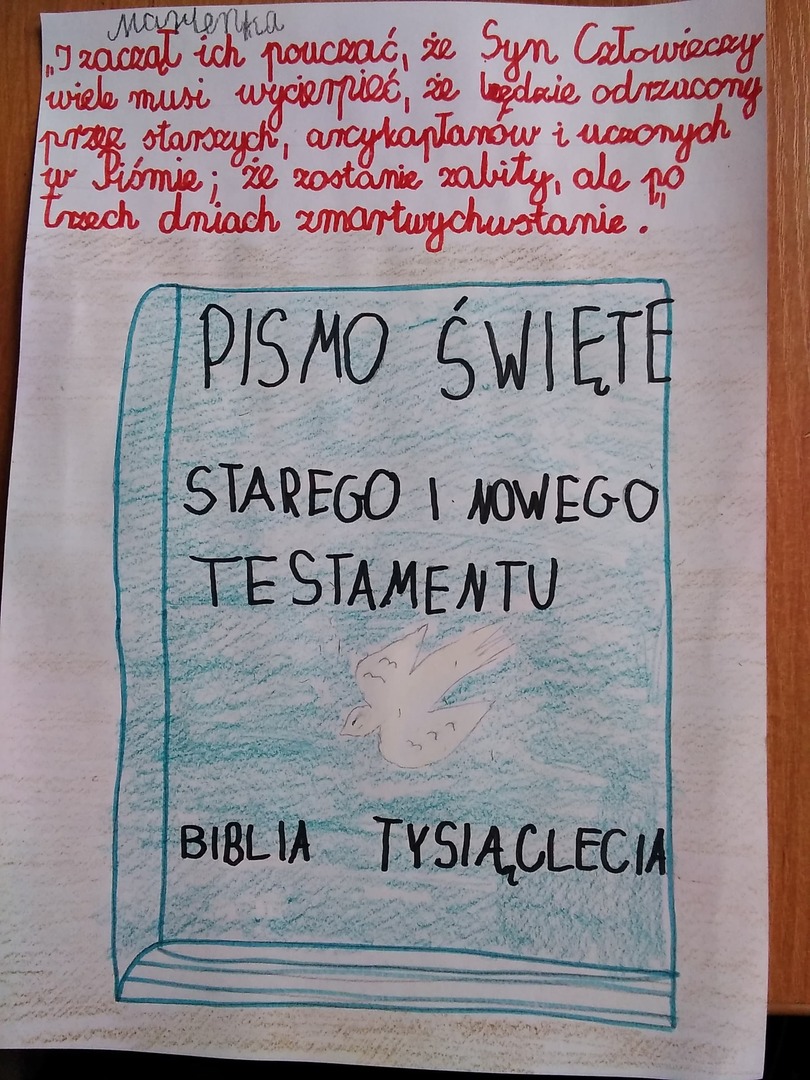 Marlenka
„I zaczął ich pouczać, że Syn Człowieczy
wiele musi wycierpieć, że będzie odrzucony
przez starszych, arcykapłanów i uczonych
w Piśmie; że zostanie zabity, ale po
trzech dniach zmartwychwstanie."
PISMO ŚWIĘTE
STAREGO I NOWEGO
TESTAMENTU
BIBLIA TYSIĄCLECIA